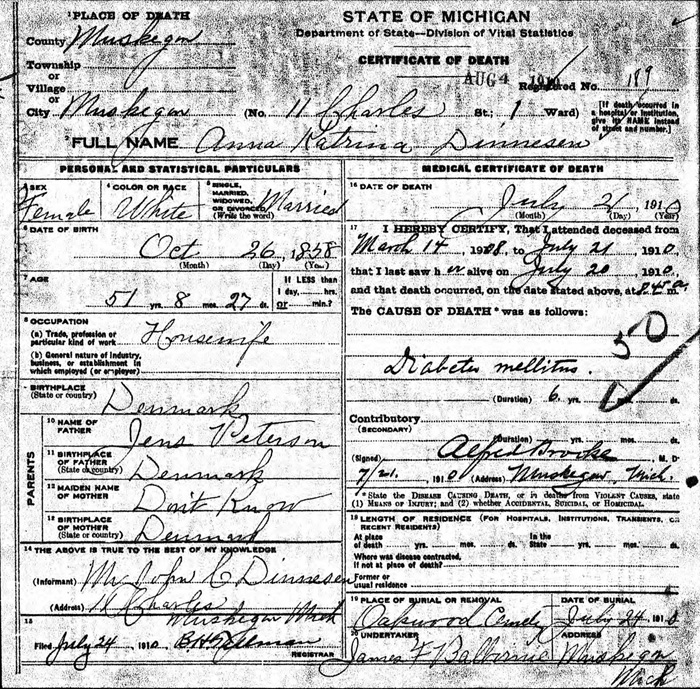 STATE OF MICHIGAN
Department of State—Division of Vital Statistics
CERTIFICATE OF DEATH
AUG 4 1910
Registered No. 189
1 PLACE OF DEATH
County Muskegon
Township
or
Village
or
City Muskegon (No. 11 Charles St.; 1 Ward)
[If death occurred in a hospital or institution, give its NAME instead of street and number.]
2 FULL NAME Anna Katrina Dinnesen
PERSONAL AND STATISTICAL PARTICULARS
3 SEX Female
4 COLOR OR RACE White
5 SINGLE, MARRIED, WIDOWED, OR DIVORCED (Write the word) Married
6 DATE OF BIRTH
Oct 26, 1858
(Month) (Day) (Year)
7 AGE
51 yrs. 8 mos. 27 ds.
If LESS than 1 day,... hrs. or ... min.?
8 OCCUPATION
(a) Trade, profession or particular kind of work Housewife
(b) General nature of industry, business, or establishment in which employed (or employer)
9 BIRTHPLACE
(State or country) Denmark
PARENTS
10 NAME OF FATHER Jens Peterson
11 BIRTHPLACE OF FATHER (State or country) Denmark
12 MAIDEN NAME OF MOTHER Don't Know
13 BIRTHPLACE OF MOTHER (State or country) Denmark
14 THE ABOVE IS TRUE TO THE BEST OF MY KNOWLEDGE
(Informant) Mr John C Dinnesen
(Address) 11 Charles
Muskegon Mich
15
Filed July 24, 1910
REGISTRAR
MEDICAL CERTIFICATE OF DEATH
16 DATE OF DEATH
July 21, 1910
(Month) (Day) (Year)
17 I HEREBY CERTIFY, That I attended deceased from
March 14, 1908, to July 21 1910,
that I last saw her alive on July 20 1910,
and that death occurred, on the date stated above, at 8.45 a. m.
The CAUSE OF DEATH* was as follows:
50
Diabetes mellitus.
(Duration) 6 yrs. mos. ds.
Contributory
(SECONDARY)
(Duration) yrs. mos. ds.
(Signed) Alfred Brooke M. D.
7/21, 1910 (Address) Muskegon, Mich.
*State the DISEASE CAUSING DEATH, or in deaths from VIOLENT CAUSES, state (1) MEANS OF INJURY; and (2) whether ACCIDENTAL, SUICIDAL, or HOMICIDAL.
18 LENGTH OF RESIDENCE (FOR HOSPITALS, INSTITUTIONS, TRANSIENTS, OR RECENT RESIDENTS)
At place of death yrs. mos. ds. In the State yrs. mos. ds.
Where was disease contracted, if not at place of death?
Former or usual residence
19 PLACE OF BURIAL OR REMOVAL Oakwood
DATE OF BURIAL July 24 1910
20 UNDERTAKER James F Balbirnie
ADDRESS Muskegon
Mich